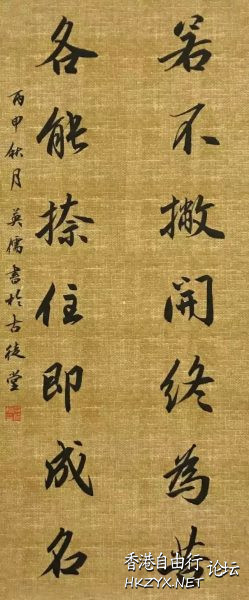 若不撇開終為苦
各能捺住即成名
丙申秋月英儒書於古徒堂
香港自由行论坛
HKZYX.NET